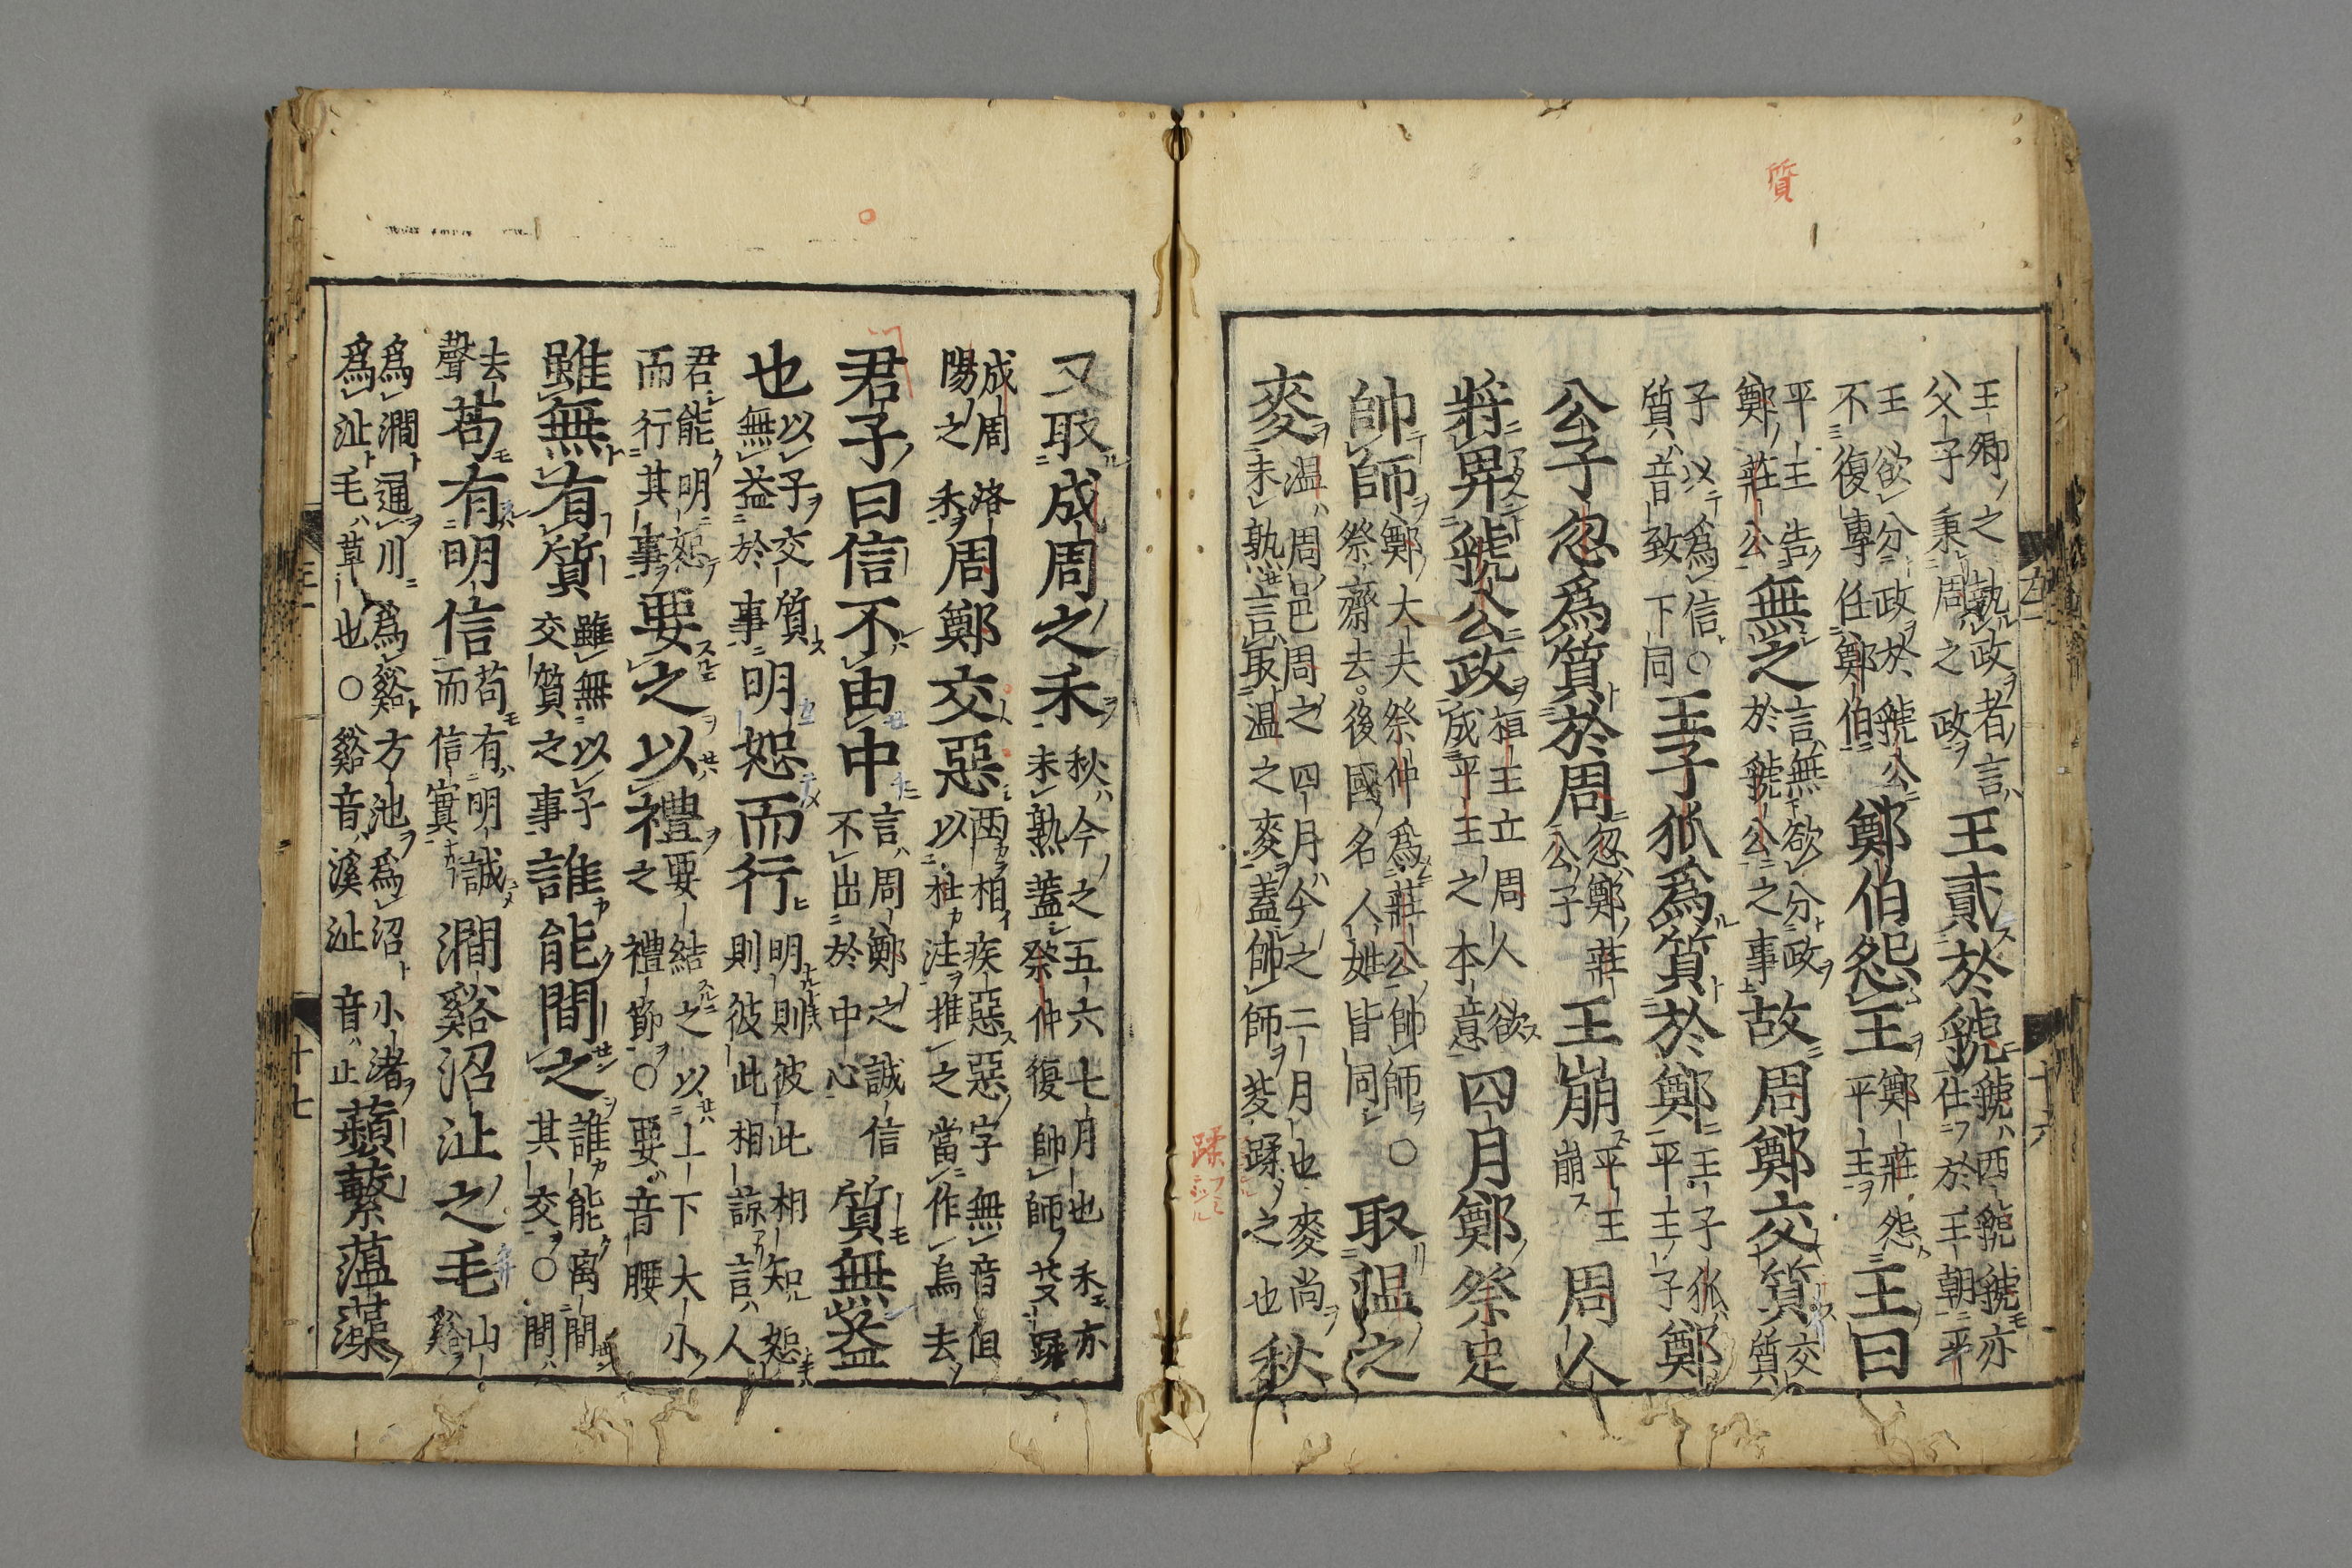 質
王卿之執政者言
父子秉周之政
王貳於虢
虢西虢虢亦
仕於王朝平
王欲分政於虢公
不復專任鄭伯
鄭伯怨王
鄭莊怨
平王
王曰
平王告
鄭莊公
無之
言無欲分政
於虢公之事
故周鄭交質
交
質
子以為信○
質音致下同
王子狐為質於鄭
王子狐
平王子
鄭
公子忽為質於周
忽鄭莊
公子
王崩
平王
崩
周人
將畀虢公政
桓王立周人欲
成平王之本意
四月鄭祭足
帥師
鄭大夫祭仲為莊公帥師○
祭齋去後國名人姓皆同
取溫之
麥
溫周邑周之四月今之二月也麥尚
未熟言取溫之麥蓋帥師芟蹂之也
秋
蹂
又取成周之禾
秋今之五六七月也禾亦
未熟蓋祭仲復帥師芟蹂
成周洛
陽之禾
周鄭交惡
兩相疾惡惡字無音但
以杜注推之當作烏去
君子曰信不由中
言周鄭之誠信
不出於中心
質無益
也
以子交質
無益於事
明恕而行
明則彼此相知恕
則彼此相諒言人
君能明恕
而行其事
要之以禮
要結之以上下大小
之禮節○要音腰
雖無有質
雖無以子
交質之事
誰能間之
誰能离間
其交○間
去
聲
苟有明信
苟有明誠
而信實
澗谿沼沚之毛
山
谿
為澗通川為谿方池為沼小渚
為沚毛草也○谿音溪沚音止
蘋蘩薀藻
十七